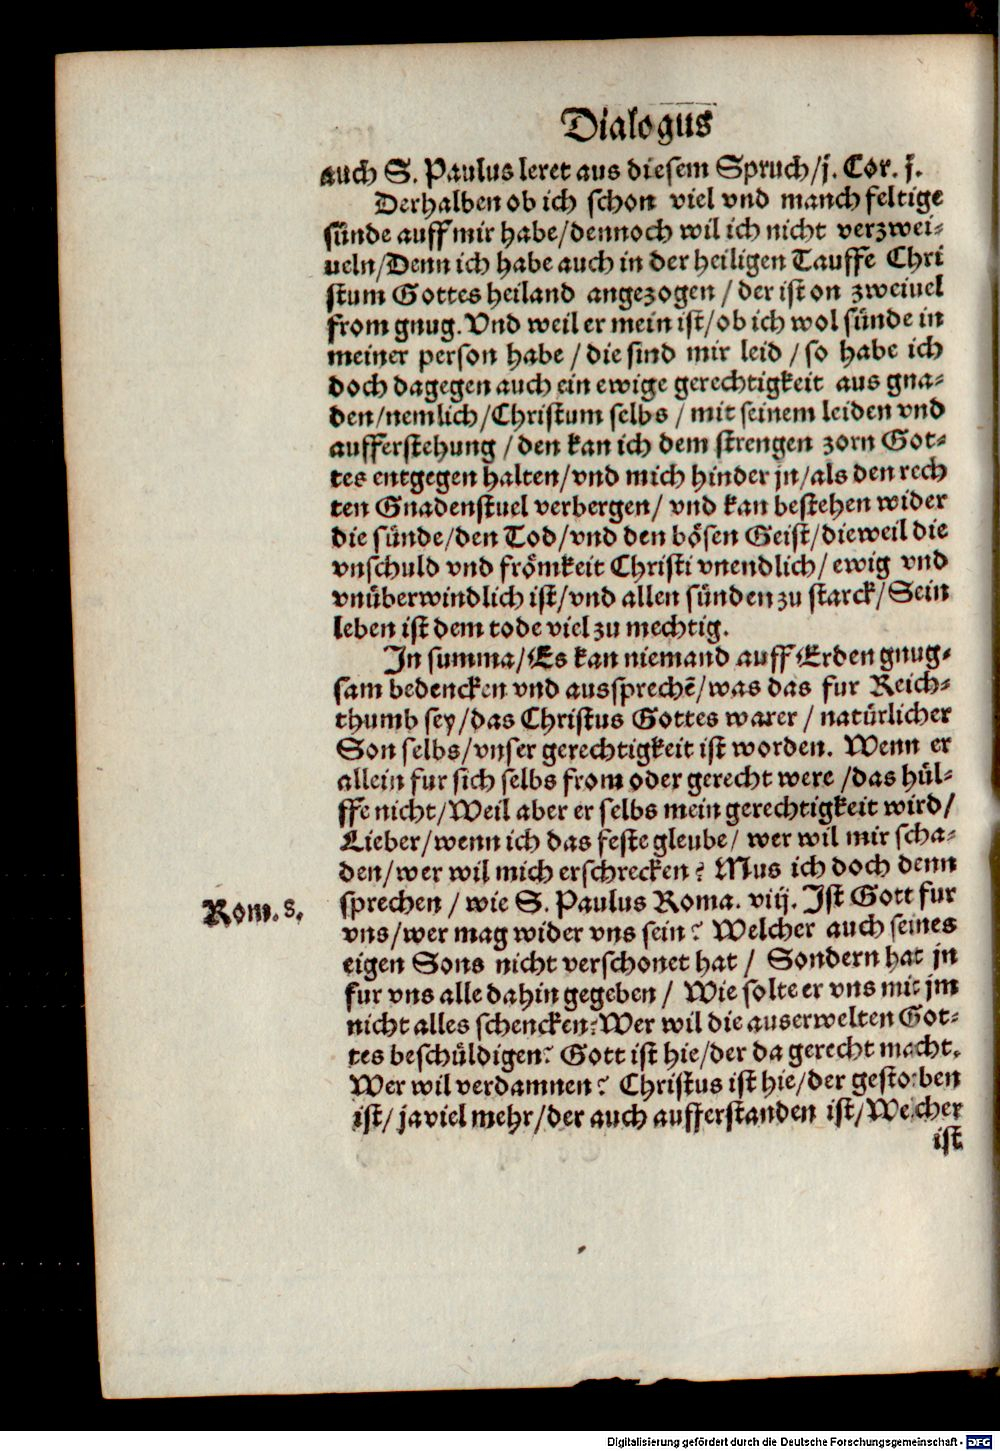 Dialogus
auch S. Paulus leret aus diesem Spruch/j. Cor. j.
Derhalben ob ich schon viel vnd manchfeltige
sünde auff mir habe/dennoch wil ich nicht verzwei-
ueln/Denn ich habe auch in der heiligen Tauffe Chri
stum Gottes heiland angezogen/der ist on zweiuel
from gnug. Vnd weil er mein ist/ob ich wol sünde in
meiner person habe/die sind mir leid/so habe ich
doch dagegen auch ein ewige gerechtigkeit aus gna-
den/nemlich/Christum selbs/mit seinem leiden vnd
aufferstehung/den kan ich dem strengen zorn Got-
tes entgegen halten/vnd mich hinder jn/als den rech
ten Gnadenstuel verbergen/vnd kan bestehen wider
die sünde/den Tod/vnd den bösen Geist/dieweil die
vnschuld vnd frömkeit Christi vnendlich/ewig vnd
vnüberwindlich ist/vnd allen sünden zu starck/Sein
leben ist dem tode viel zu mechtig.
In summa/Es kan niemand auff Erden gnug-
sam bedencken vnd aussprechē/was das fur Reich-
thumb sey/das Christus Gottes warer/natürlicher
Son selbs/vnser gerechtigkeit ist worden. Wenn er
allein fur sich selbs from oder gerecht were/das hül-
ffe nicht/Weil aber er selbs mein gerechtigkeit wird/
Lieber/wenn ich das feste gleube/wer wil mir scha-
den/wer wil mich erschrecken? Mus ich doch denn
Rom. 8.
sprechen/wie S. Paulus Roma. viij. Ist Gott fur
vns/wer mag wider vns sein? Welcher auch seines
eigen Sons nicht verschonet hat/Sondern hat jn
fur vns alle dahin gegeben/Wie solte er vns mit jm
nicht alles schencken? Wer wil die auserwelten Got-
tes beschüldigen? Gott ist hie/der da gerecht macht.
Wer wil verdamnen? Christus ist hie/der gestorben
ist/ja viel mehr/der auch aufferstanden ist/Welcher
ist
Digitalisierung gefördert durch die Deutsche Forschungsgemeinschaft - DFG